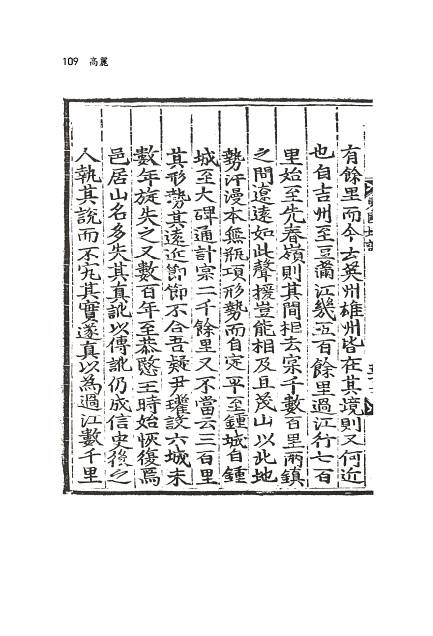 109 高麗
有餘里而今去英州雄州皆在其境則又何近
也自吉州至豆滿江幾五百餘里過江行七百
里始至先春嶺則其間相去宲千數百里兩鎮
之間遼遠如此聲援豈能相及且茂山以此地
勢汗漫本無瓶項形勢而自定平至鍾城自鍾
城至大碑通計宲二千餘里又不當云三百里
其形勢其遠近節節不合吾疑尹瓘設六城未
數年旋失之又數百年至恭愍王時始恢復焉
邑居山名多失其真訛以傳訛仍成信史後之
人執其說而不究其實遂真以為過江數千里